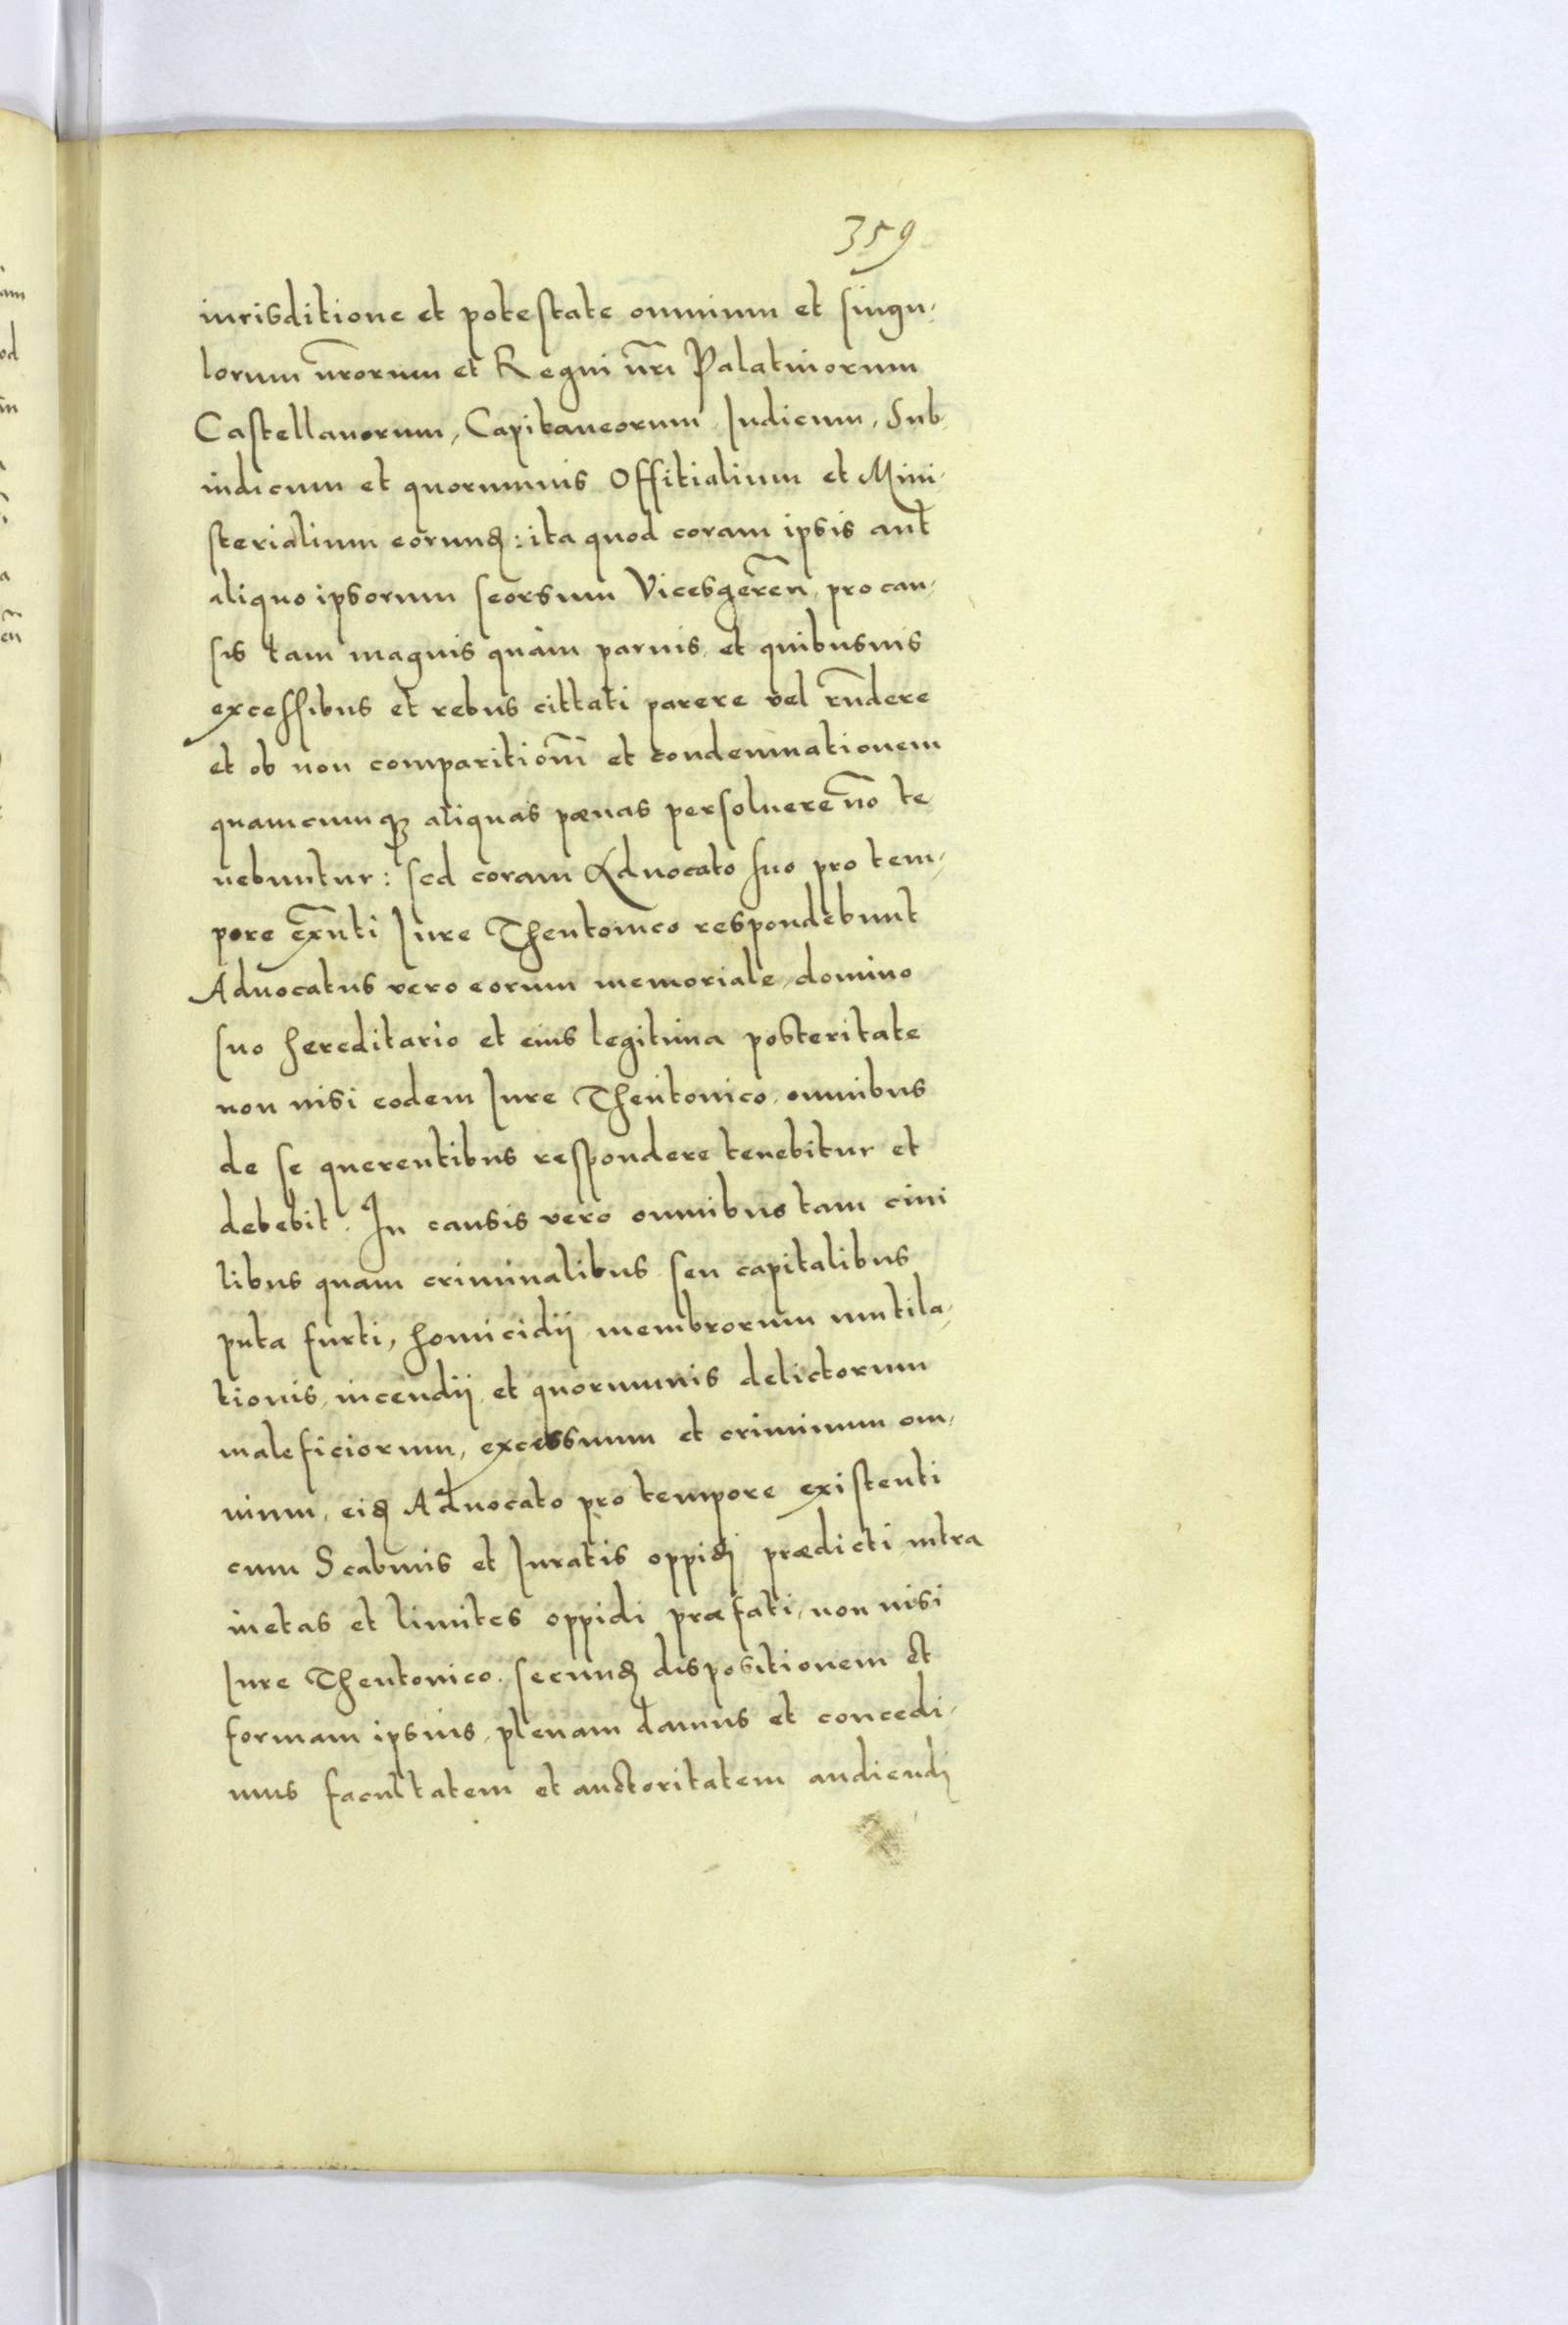 359
iurisditione et potestate omnium et singu,
lorum nr̄orum et Regni nr̄i Palatinorum
Castellanorum, Capitaneorum, Iudicum, Sub,
iudicum et quorumuis Offitialium et Mini,
sterialium eorundꝫ: ita quod coram ipsis aut
aliquo ipsorum seorsum Vicesgereñ, pro cau,
sis tam magnis quàm paruis, et quibusuis
excessibus et rebus cittati parere vel rñdere
et ob non comparitiom̄ et condemnationem
quamcumqꝫ aliquas pœnas persoluere nō te
nebuntur: sed coram Aduocato suo pro tem,
pore exn̄ti Iure Theutonico respondebunt
Aduocatus vero eorum memoriale, domino
suo hereditario et eius legitima posteritate
non nisi eodem Iure Theutonico, omnibus
de se querentibus respondere tenebitur et
debebit. In causis vero omnibus tam ciui
libus quam criminalibus seu capitalibus
puta furti, homicidij membrorum mutila,
tionis, incendij, et quorumuis delictorum
maleficiorum, excessuum et criminum om,
nium, eidꝫ Aduocato pro tempore existenti
cum Scabinis et Iuratis oppidj prædicti intra
metas et limites oppidi præfati, non nisi
Iure Theutonico. secundꝫ dispositionem et
formam ipsius, plenam damus et concedi,
mus facultatem et auctoritatem audiendj